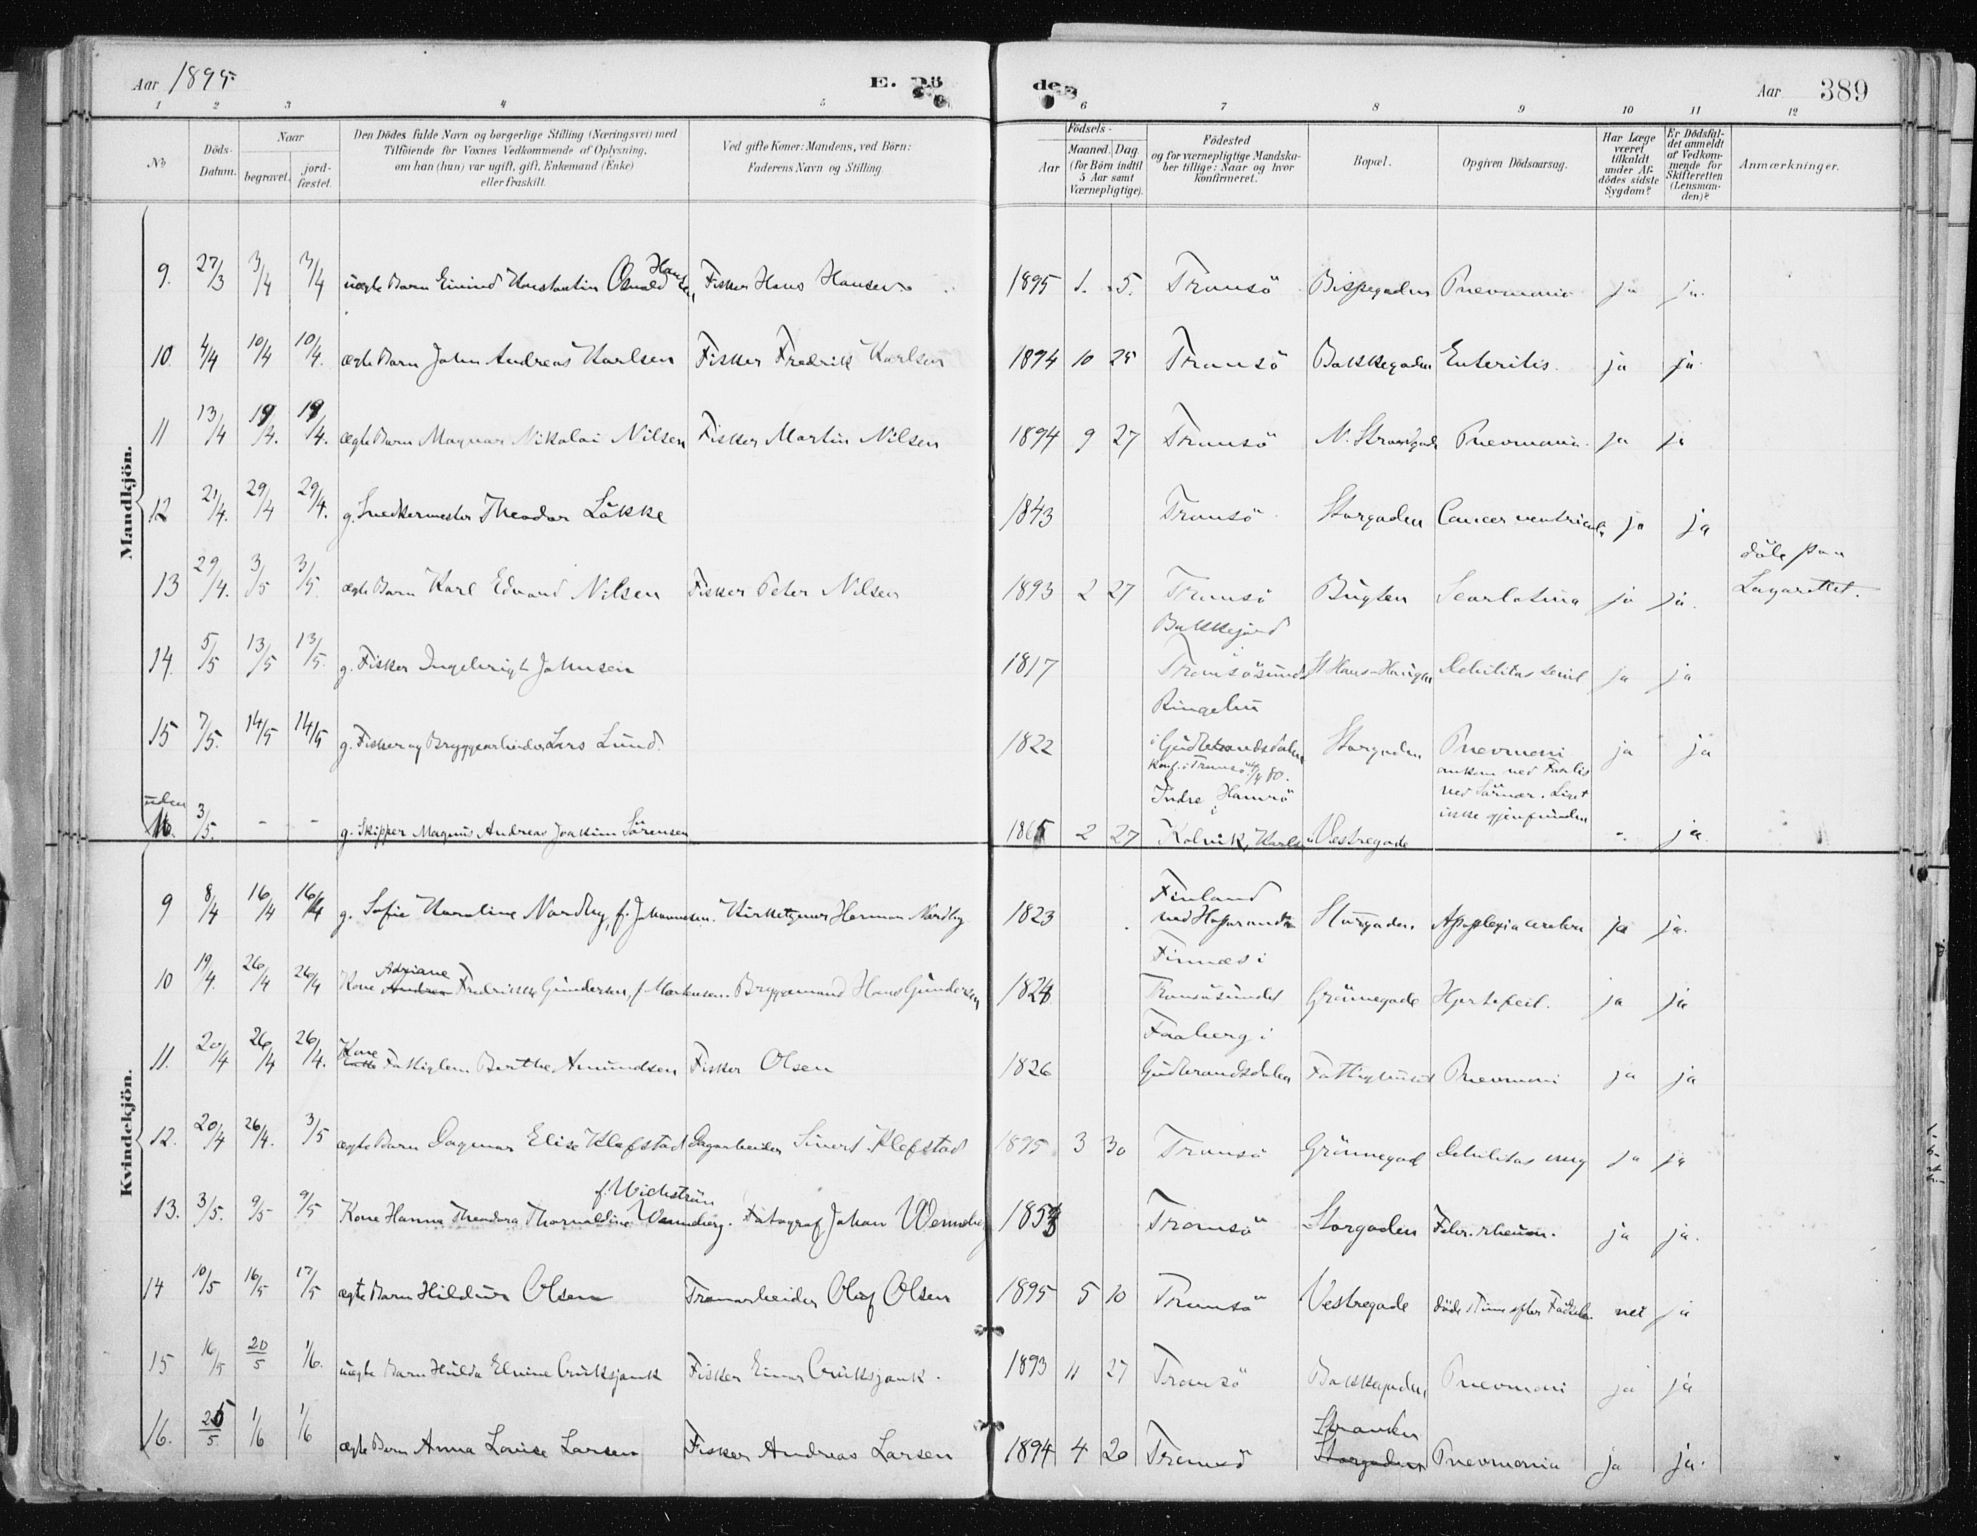 Aar 1895. E. Dö de. Aar 389
1 2 3 4 5 6 7 8 9 10 11 12
No
Döds-Datum.
Naar begravet. jordfæstet.
Den Dödes fulde Navn og borgerlige Stilling (Næringsvei) med
Tilföiende for Voxnes Vedkommende af Oplysning,
om han (hun) var ugift, gift, Enkemand (Enke)
eller fraskilt.
Ved gifte Koner: Mandens, ved Börn:
Faderens Navn og Stilling
Födsels-
Aar Maaned. Dag
(for Börn indtil
5 Aar samt
Værnepligtige).
Födested
og for værnepligtige Mandska-
ber tillige: Naar og hvor
konfirmeret.
Bopæl.
Opgiven Dödsaarsag.
Har Læge
været
tilkaldt
under Af-
dödes sidste
Sygdom?
Er Dödsfal-
det anmeldt
af Vedkom-
mende for
Skifteretten
(Lensman-
den)?
Anmærkninger.
Mandkjön.
9. 27/3 3/4 3/4 uægte Barn Einind Konstantin Osvald Hansen, Fisker Hans Hansen 1895 1. 5. Tromsö Bispegaden Pneumoni ja ja.
10. 4/4 10/4 10/4. ægte Barn John Andreas Karlsen Fisker Fredrik Karlsen 1894 10 25 Tromsö Bakkegaden Enteritis. ja ja.
11 13/4 19/4. 19/4. ægte Barn Magnar Nikolai Nilsen Fisker Martin Nilsen 1894 9 27 Tromsö N. Strandgade Pneumonia. ja ja
12 21/4. 29/4 29/4. g. Snedkermester Theodor Lökke 1843 Tromsö Storgaden Cancer ventriculi ja ja
13 29/4. 3/5 3/5. ægte Barn Karl Edvard Nilsen Fisker Peter Nilsen 1893 2 27 Tromsö Bugten Scarlatina ja ja. döde paa
Lazarettet.
14. 5/5 13/5 13/5. g. Fisker Ingebrigt Johnsen 1817 Bakkejord
Tromsösund St Hans-Haugen Debilitas senil ja ja
15 7/5. 14/5 14/5 g. Fisker og Bryggearbeider Lars Lund. 1822 Ringebu
i Gudbrandsdalen Storgaden Pneumoni ja ja
uden No. 3/5. - - g. Skipper Magnus Andreas Joakim Sörensen 1865 2 27 Konf. i Tromsö 80.
Indre Hamrö
i Kolvik, Karlsö Vestregade omkom ved Forlis
ved Sörvær. Liget
ikke gjenfunden - ja.
Kvindekjön.
9 8/4 16/4 16/4 g. Sofie Karoline Nordby, f. Johannesen. Kirketjener Herman Nordby 1823 Finland
ved Haparanda Storgaden. Apoplexia cerebri ja ja.
10 19/4. 26/4 26/4 Kone Adriane Andrea Fredrikke Gundersen, f. Martinsen. Bryggemand Hans Gundersen 1824 Finnæs i
Tromsösundet Grönnegade Hjertefeil. ja ja
11. 20/4 26/4 26/4. Kone Fattiglem Berthe Amundsen Fisker Olsen 1826 Faaberg i
Gudbrandsdalen Fattighuset Pneumoni ja ja
12. 20/4 26/4. 3/5 ægte Barn Dagmar Elise Klefstad Dagarbeider Sivert Klefstad 1895 3 30 Tromsö Grönnegad Debilitas ung ja ja
13. 3/5. 9/5 9/5 Kone Hanna Theodora Thorvaldine Wenneberg. f. Wichström Fotograf Johan Wenneberg 1853 Tromsö Storgaden Febr. rheum. ja ja.
14 10/5 16/5 17/5 ægte Barn Hildur Olsen Tranarbeider Oluf Olsen 1895 5 10 Tromsö Vestregade döde 1 Time efter Födselen nei ja
15 16/5 20/5 1/6. uægte Barn Hulda Elvine Fisker Einar 1893 11 27 Tromsö Bakkegaden, Pneumoni ja ja
16. 25/5 1/6 1/6 ægte Barn Anna Lovise Larsen Fisker Andreas Larsen 1894 4 20 Tromsö Stranden
Storgaden Pneumonia ja ja.